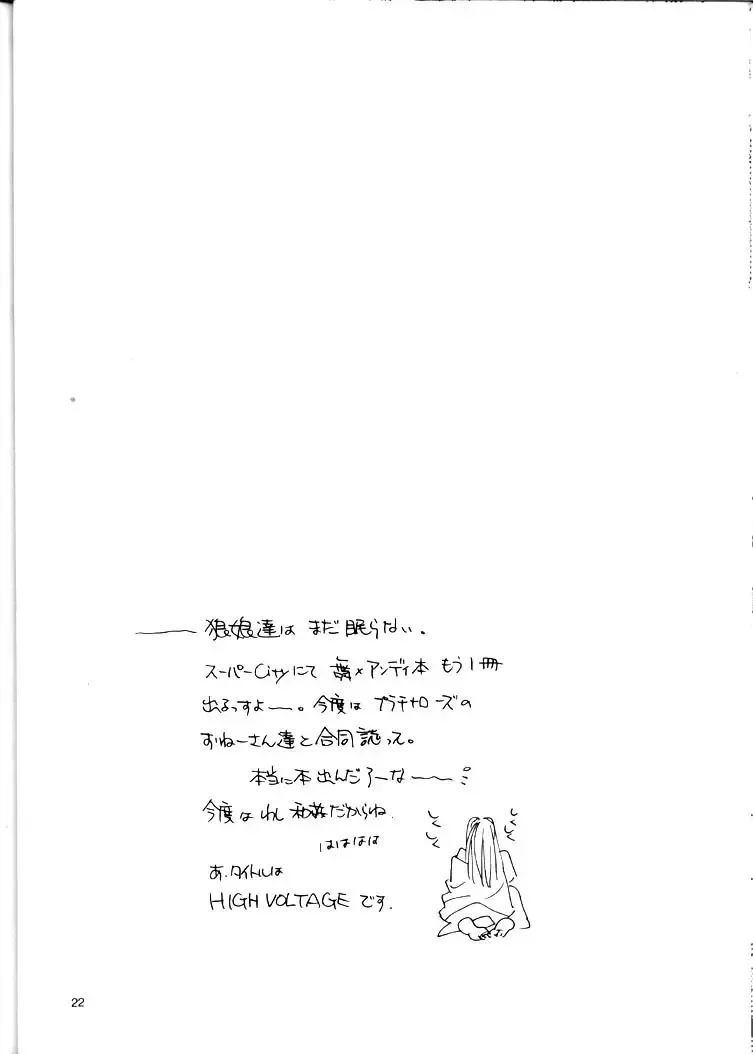 狼娘達は まだ眠らない。
スーパーCityにて ×アンディ本 もう1冊
出るっすよー。今度は プラチナローズの
おねーさん達と合同誌って。
本当に本出んだろーな———
今度は わし だからね.
はははは
しくしく
しくしく
あ.タイトルは
HIGH VOLTAGE です.
22